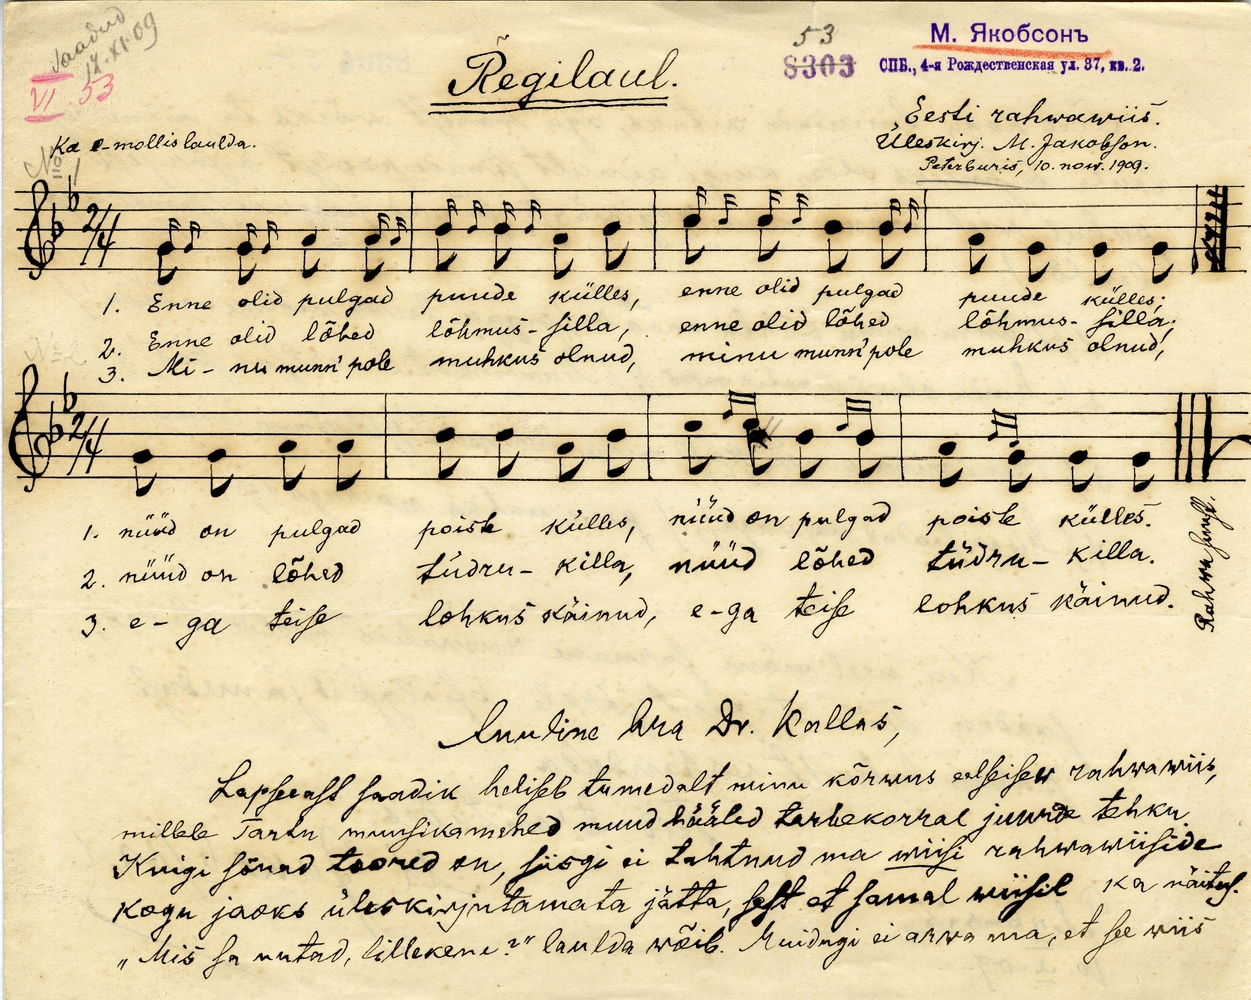 Saadud
17.XI.09
VI 53
Regilaul.
53
8303
М. Якобсонъ
СПБ., 4-я Рождественская ул. 37, кв. 2.
Eesti rahwawiis.
Üleskirj. M. Jakobson.
Peterburis, 10. now. 1909.
Ka e-mollis laulda.
No 1
2/4
1. Enne olid pulgad puude külles, enne olid pulgad puude külles;
2. Enne olid lõhed lõhmus-silla, enne olid lõhed lõhmus-silla;
3. Mi-nu munn' pole muhkus olnud, minu munn' pole muhkus olnud,
No 2
2/4
1. nüüd on pulgad poiste külles, nüüd on pulgad poiste külles.
2. nüüd on lõhed tüdru-killa, nüüd lõhed tüdru-killa.
3. e-ga teise lohkus käinud, e-ga teise lohkus käinud.
Rahwa suust.
Auuline hra Dr. Kallas,
Lapseeast saadik heliseb tumedalt minu kõrwus eelseisew rahwawiis,
millele Tartu muusikamehed muud hääled tarbekorral juurde tehku.
Kuigi sõnad toored on, siisgi ei tahtnud ma wiisi rahwawiiside
kogu jaoks üleskirjutamata jätta, sest et samal wiisil ka näitus.
„Mis sa nutad, lillekene?" laulda wõib. Muidugi ei arwa ma, et see wiis